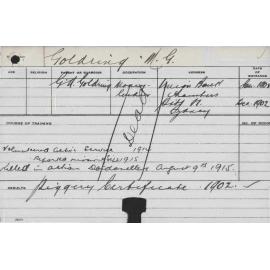 Goldring M. G.
AGE RELIGION PARENT OR GUARDIAN OCCUPATION ADDRESS DATE OF ENTRANCE
G. R. Goldring Money Lender Union Bank
Chambers
Pitt St.
Sydney
Dec. 1902
COURSE OF TRAINING
Dead
Volunteered Active Service 1914
Reported missing 1915
Killed in action Dardanelles August 9th 1915.
RESULTS Piggery Certificate 1902